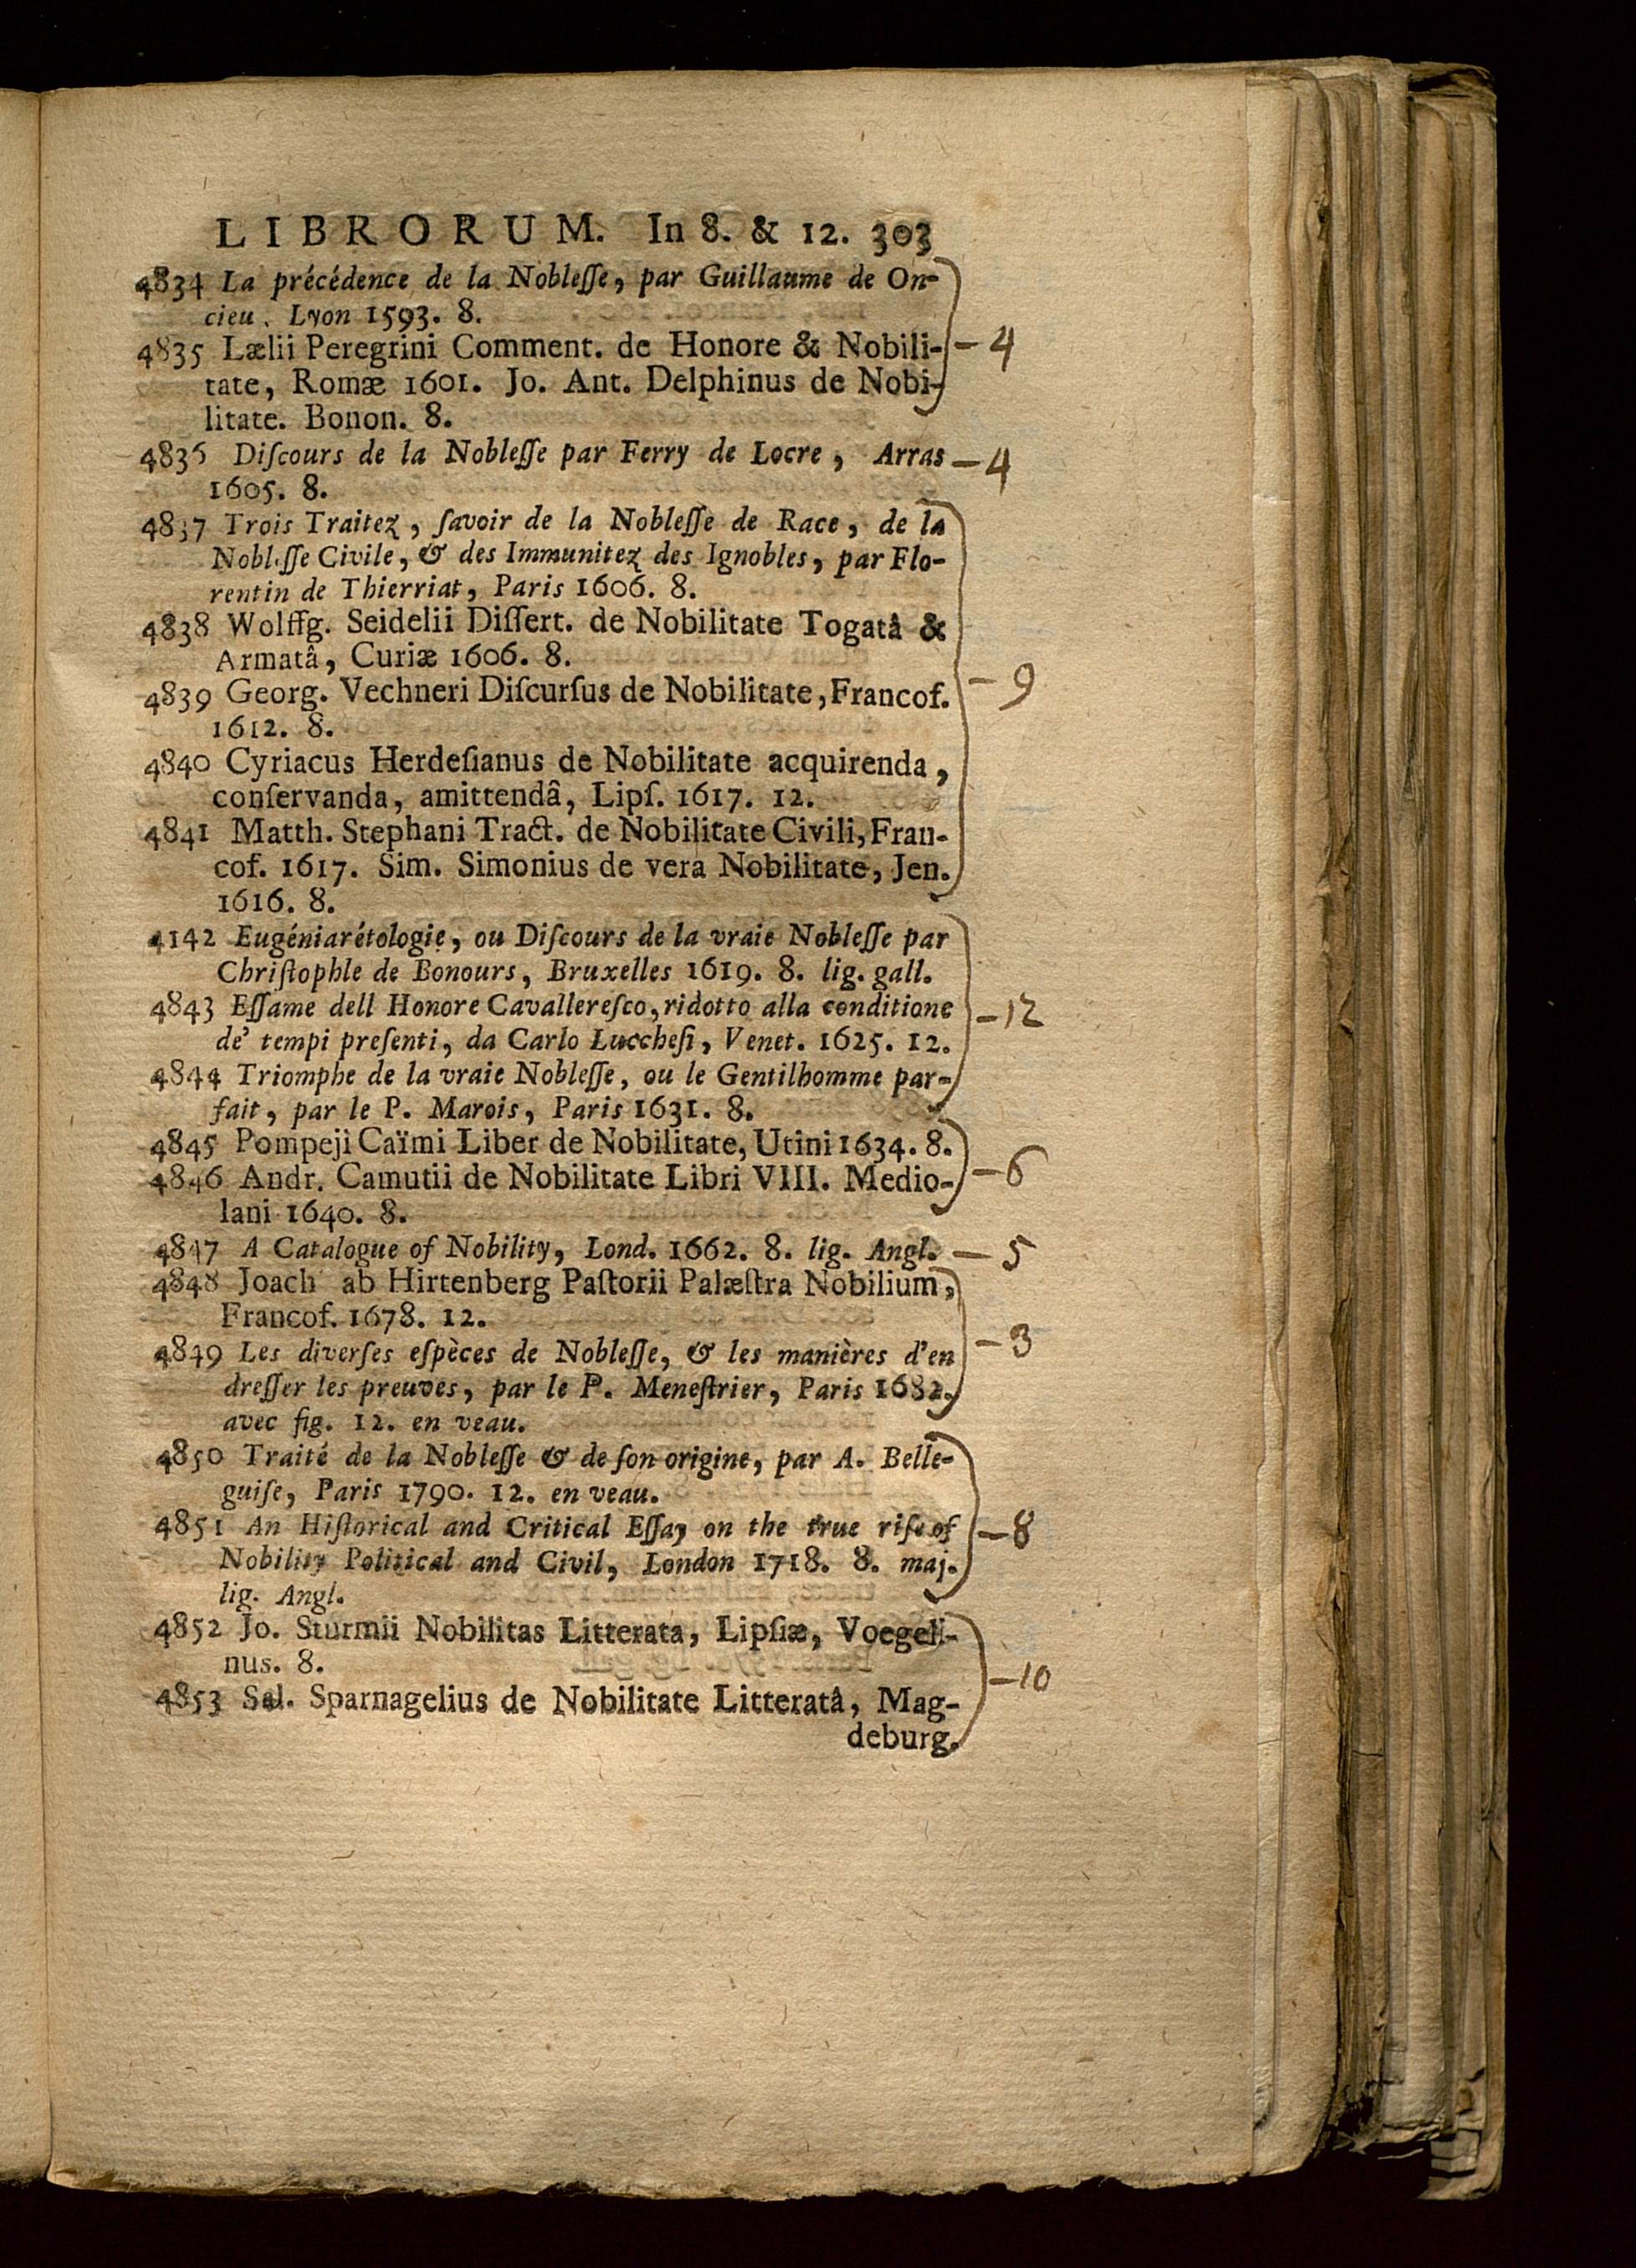 LIBRORUM. In 8. & 12. 303
4834 La précédence de la Nobleſſe, par Guillaume de On-
cieu. Lyon 1593. 8.
4835 Lælii Peregrini Comment. de Honore & Nobili- — 4
tate, Romæ 1601. Jo. Ant. Delphinus de Nobi-
litate. Bonon. 8.
4836 Diſcours de la Nobleſſe par Ferry de Locre, Arras — 4
1605. 8.
4837 Trois Traitez, ſavoir de la Nobleſſe de Race, de la
Nobleſſe Civile, & des Immunitez des Ignobles, par Flo-
rentin de Thierriat, Paris 1606. 8.
4838 Wolffg. Seidelii Diſſert. de Nobilitate Togatâ &
Armatâ, Curiæ 1606. 8.
4839 Georg. Vechneri Diſcurſus de Nobilitate, Francof. — 9
1612. 8.
4840 Cyriacus Herdeſianus de Nobilitate acquirenda,
conſervanda, amittendâ, Lipſ. 1617. 12.
4841 Matth. Stephani Tract. de Nobilitate Civili, Fran-
cof. 1617. Sim. Simonius de vera Nobilitate, Jen.
1616. 8.
4142 Eugéniarétologie, ou Diſcours de la vraie Nobleſſe par
Chriſtophle de Bonours, Bruxelles 1619. 8. lig. gall.
4843 Eſſame dell Honore Cavallereſco, ridotto alla conditione — 12
de' tempi preſenti, da Carlo Luccheſi, Venet. 1625. 12.
4844 Triomphe de la vraie Nobleſſe, ou le Gentilhomme par-
fait, par le P. Marois, Paris 1631. 8.
4845 Pompeji Caïmi Liber de Nobilitate, Utini 1634. 8.
4846 Andr. Camutii de Nobilitate Libri VIII. Medio- — 6
lani 1640. 8.
4847 A Catalogue of Nobility, Lond. 1662. 8. lig. Angl. — 5
4848 Joach ab Hirtenberg Paſtorii Palæſtra Nobilium,
Francof. 1678. 12.
4849 Les diverſes eſpèces de Nobleſſe, & les manières d'en — 3
dreſſer les preuves, par le P. Meneſtrier, Paris 1682.
avec fig. 12. en veau.
4850 Traité de la Nobleſſe & de ſon origine, par A. Belle-
guiſe, Paris 1790. 12. en veau.
4851 An Hiſtorical and Critical Eſſay on the true riſe of — 8
Nobility Political and Civil, London 1718. 8. maj.
lig. Angl.
4852 Jo. Sturmii Nobilitas Litterata, Lipſiæ, Voegeli-
nus. 8.
4853 Sal. Sparnagelius de Nobilitate Litteratâ, Mag- — 10
deburg.